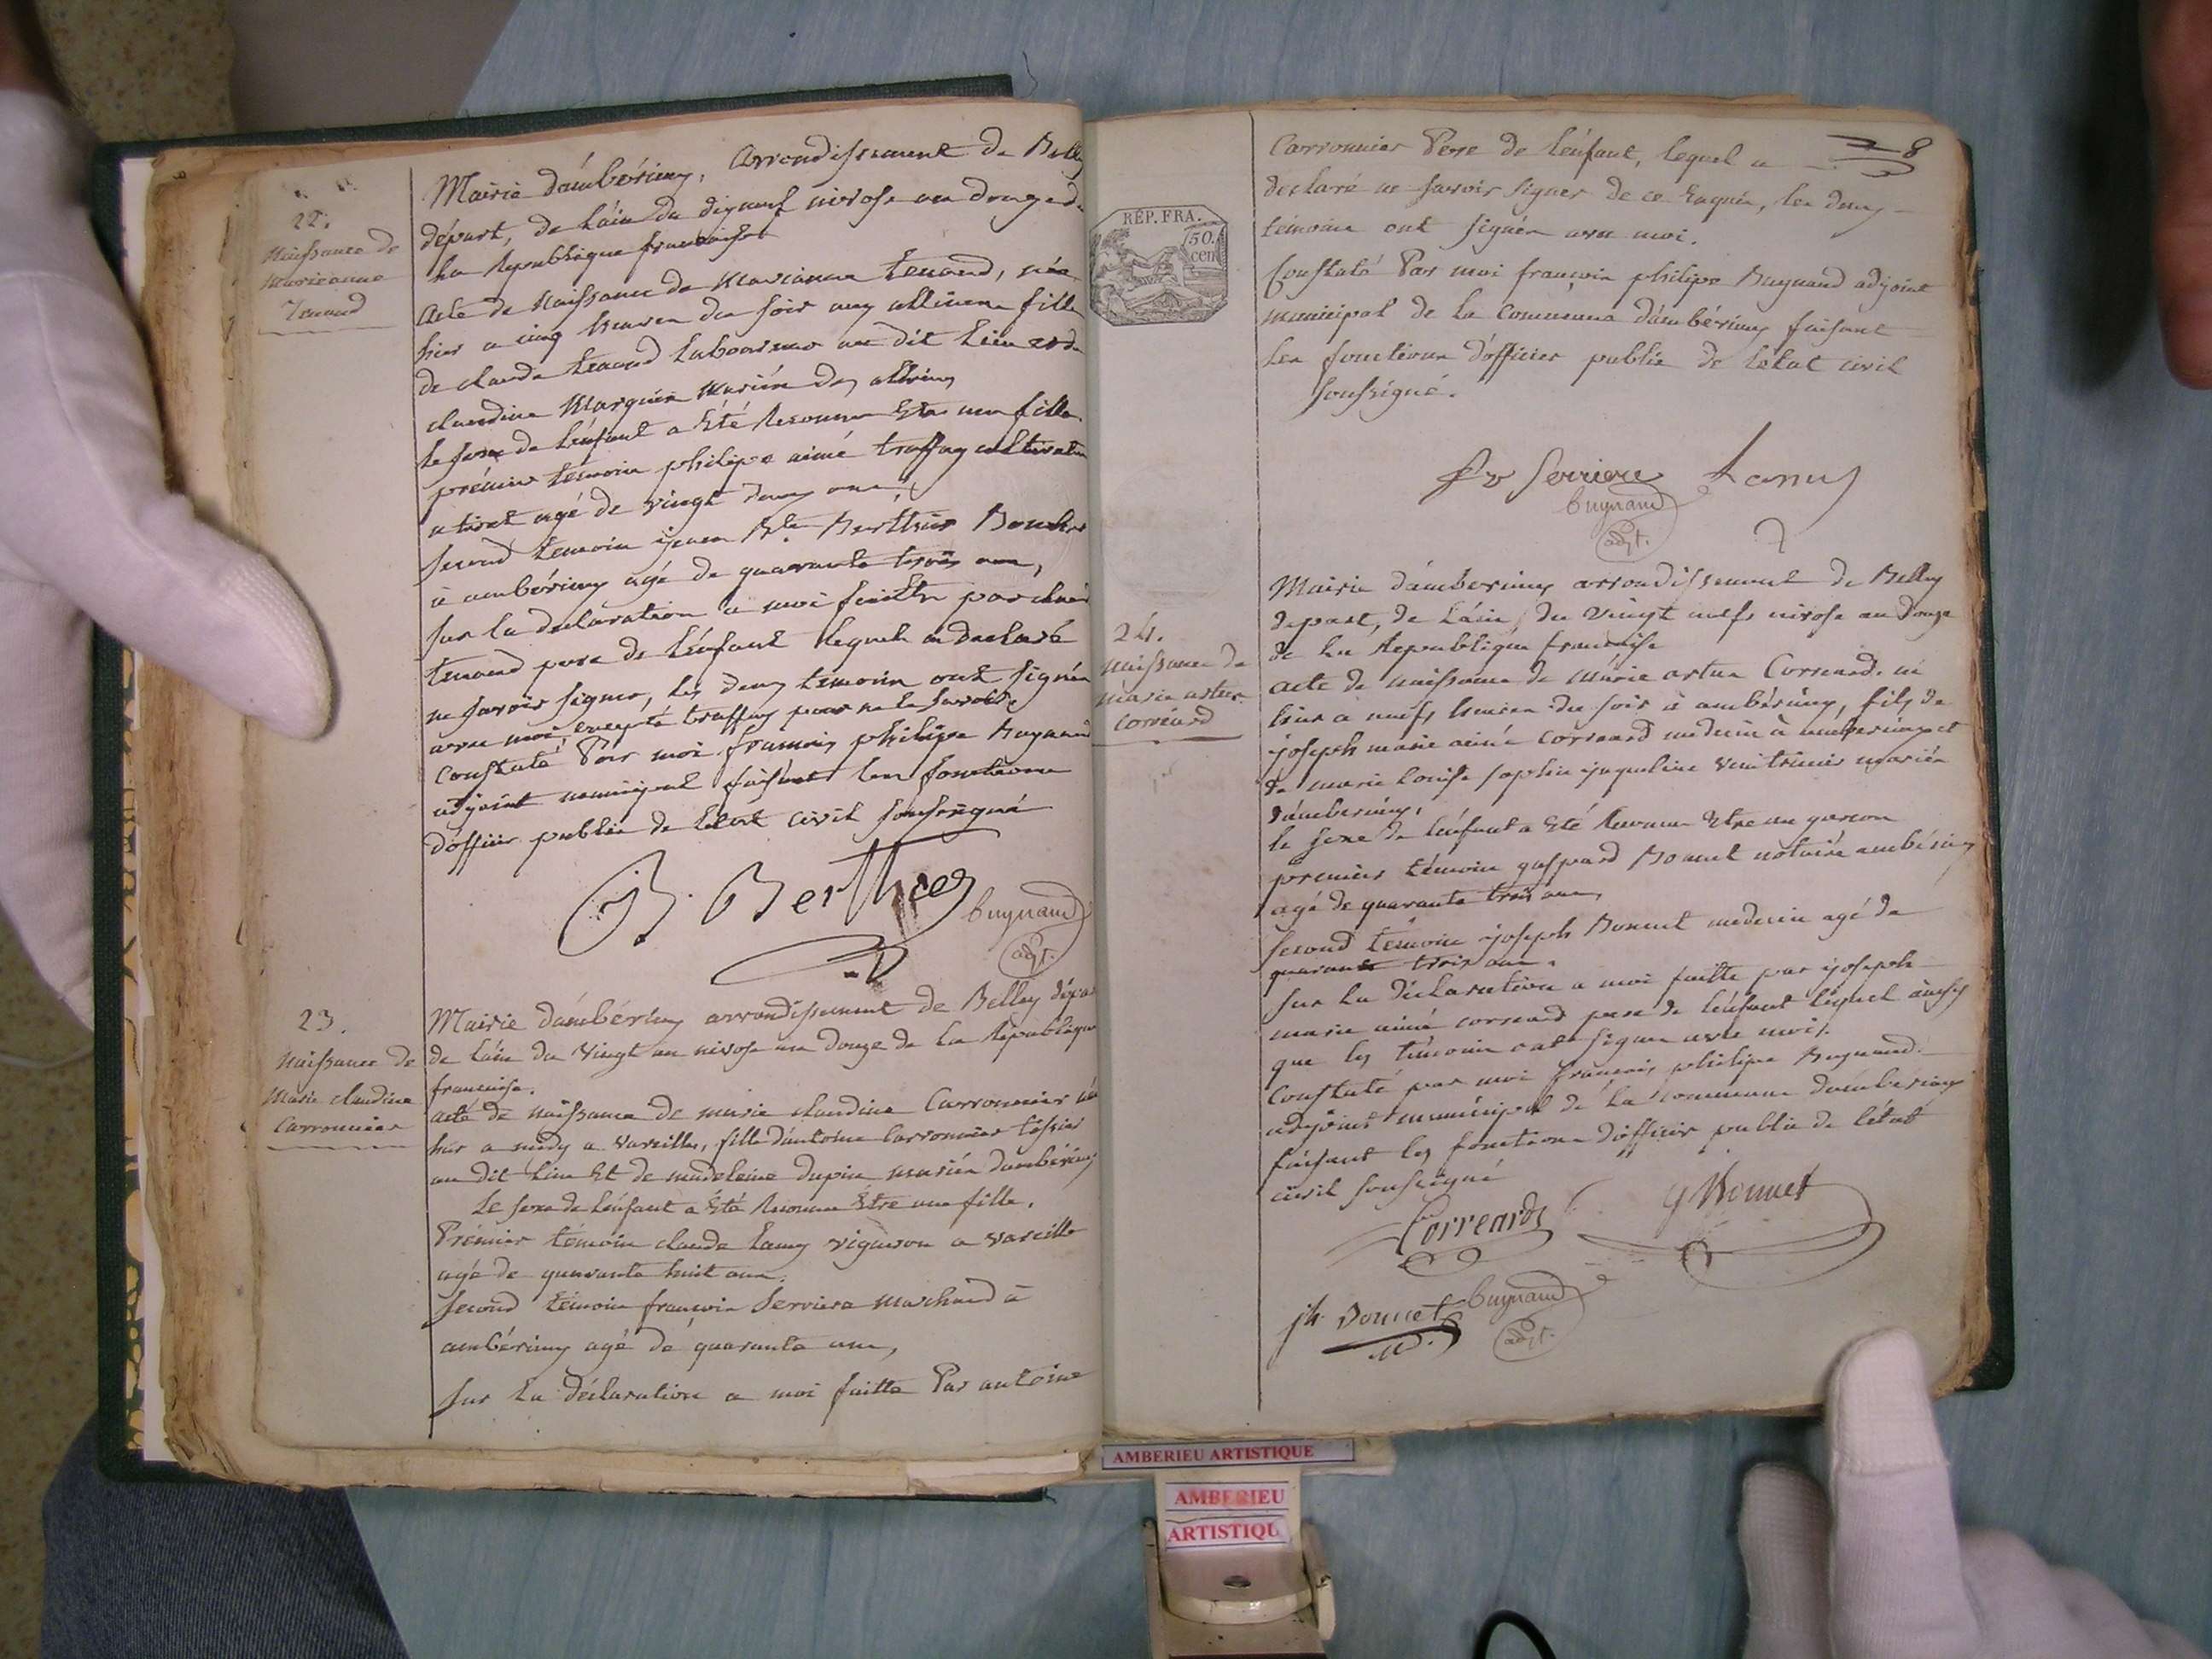 22.
Naissance de
Marieanne
Tenand
Mairie d'ambérieux, arrondissement de Belley
départ, de L'ain du dix neuf nivose an douze de
La Republique francaise
acte de Naissance de Marianne tenand, née
hier a cinq heures du soir aux allimes fille
de claude tenand Laboureur au dit Lieu et de
claudine Marguin mariés
le sexe de L'enfant a Eté Reconnu Etre une fille
prémier témoin philipe aimé truffay cultivateur
agé de vingt deux ans,
second temoin jean Bte. Berthier Boucher
à ambérieux agé de quarante trois ans,
sur la declaration a moi faitte par claude
tenand pere de L'enfant lequel a declaré
ne savoir signer, les deux temoins ont signés
avec moi, excepté truffay pour ne le savoir
constaté Par moi francois philipe Bugnand
adjoint municipal faisant les fonctions
d'officier public de L'etat civil soussigné
B. Berthier
bugnand
adjt.
23.
Naissance de
Marie claudine
Carronnier
Mairie d'ambérieux arrondissement de Belley dépar
de L'ain du vingt un nivose an douze de La République
francaise.
acte de naissance de marie claudine Carronnier née
hier a midy a vareilles, fille d'antoine Carronnier tissier
au dit Lieu Et de madeleine dupin mariés d'ambérieux
Le sexe de L'enfant a Eté Reconnu Etre une fille.
Prémier témoin claude Lamy vigneron a vareille
agé de quarante huit ans.
second témoin francois Serriere marchand à
ambérieux agé de quarante ans,
sur La déclaration a moi faitte Par antoine
28
Carronnier Pere de L'énfant, lequel a
declaré ne savoir signer de ce Enquis, les deux
témoins ont signés avec moi.
Constaté Par moi françois philipe Bugnand adjoint
municipal de La Commune d'ambérieux faisant
Les fonctions d'officier public de L'etat civil
soussigné.
RÉP. FRA.
50.
cen
fr Serriere Lamy
bugnand
adjt.
24.
naissance de
marie artur
corréard
Mairie d'amberieux arrondissement de Belley
depart, de L'ain, du vingt neuf nivose an douze
de La Republique francaise
acte de naissance de marie artur Correard. né
hier a neuf heures du soir à ambérieux, fils de
joseph marie aimé correard médecin à amberieux et
de marie Louise sophie jaqueline mariés
d'ambérieux,
le sexe de L'enfant a Eté Reconnu Etre un garcon
premier témoin gaspard Bonnet notaire ambérieux
agé de quarante trois ans,
second témoin joseph Bonnet medecin agé de
quarante trois ans.
sur La déclaration a moi faitte par joseph
marie aimé correard pere de L'enfant lequel ainsi
que les témoins ont signés avec moi.
constaté par moi francois philipe Bugnand
adjoint municipal de la commune d'amberieux
faisant les fonctions d'officier public de L'état
civil soussigné
Correard
G Bonnet
jh. Bonnet
bugnand
adjt.
AMBERIEU ARTISTIQUE
AMBERIEU
ARTISTIQU